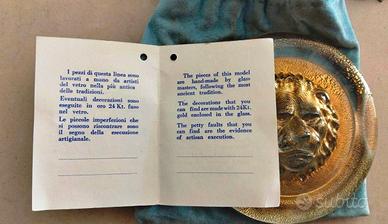 I pezzi di questa linea sono
lavorati a mano da artisti
del vetro nella più antica
delle tradizioni.
Eventuali decorazioni sono
eseguite in oro 24 Kt. fuso
nel vetro.
Le piccole imperfezioni che
si possono riscontrare sono
il segno della esecuzione
artigianale.
The pieces of this model
are hand-made by glass
masters, following the most
ancient tradition.
The decorations that you
can find are made with 24Kt.
gold enclosed in the glass.
The petty faults that you
can find are the evidence
of artisan execution.
subito